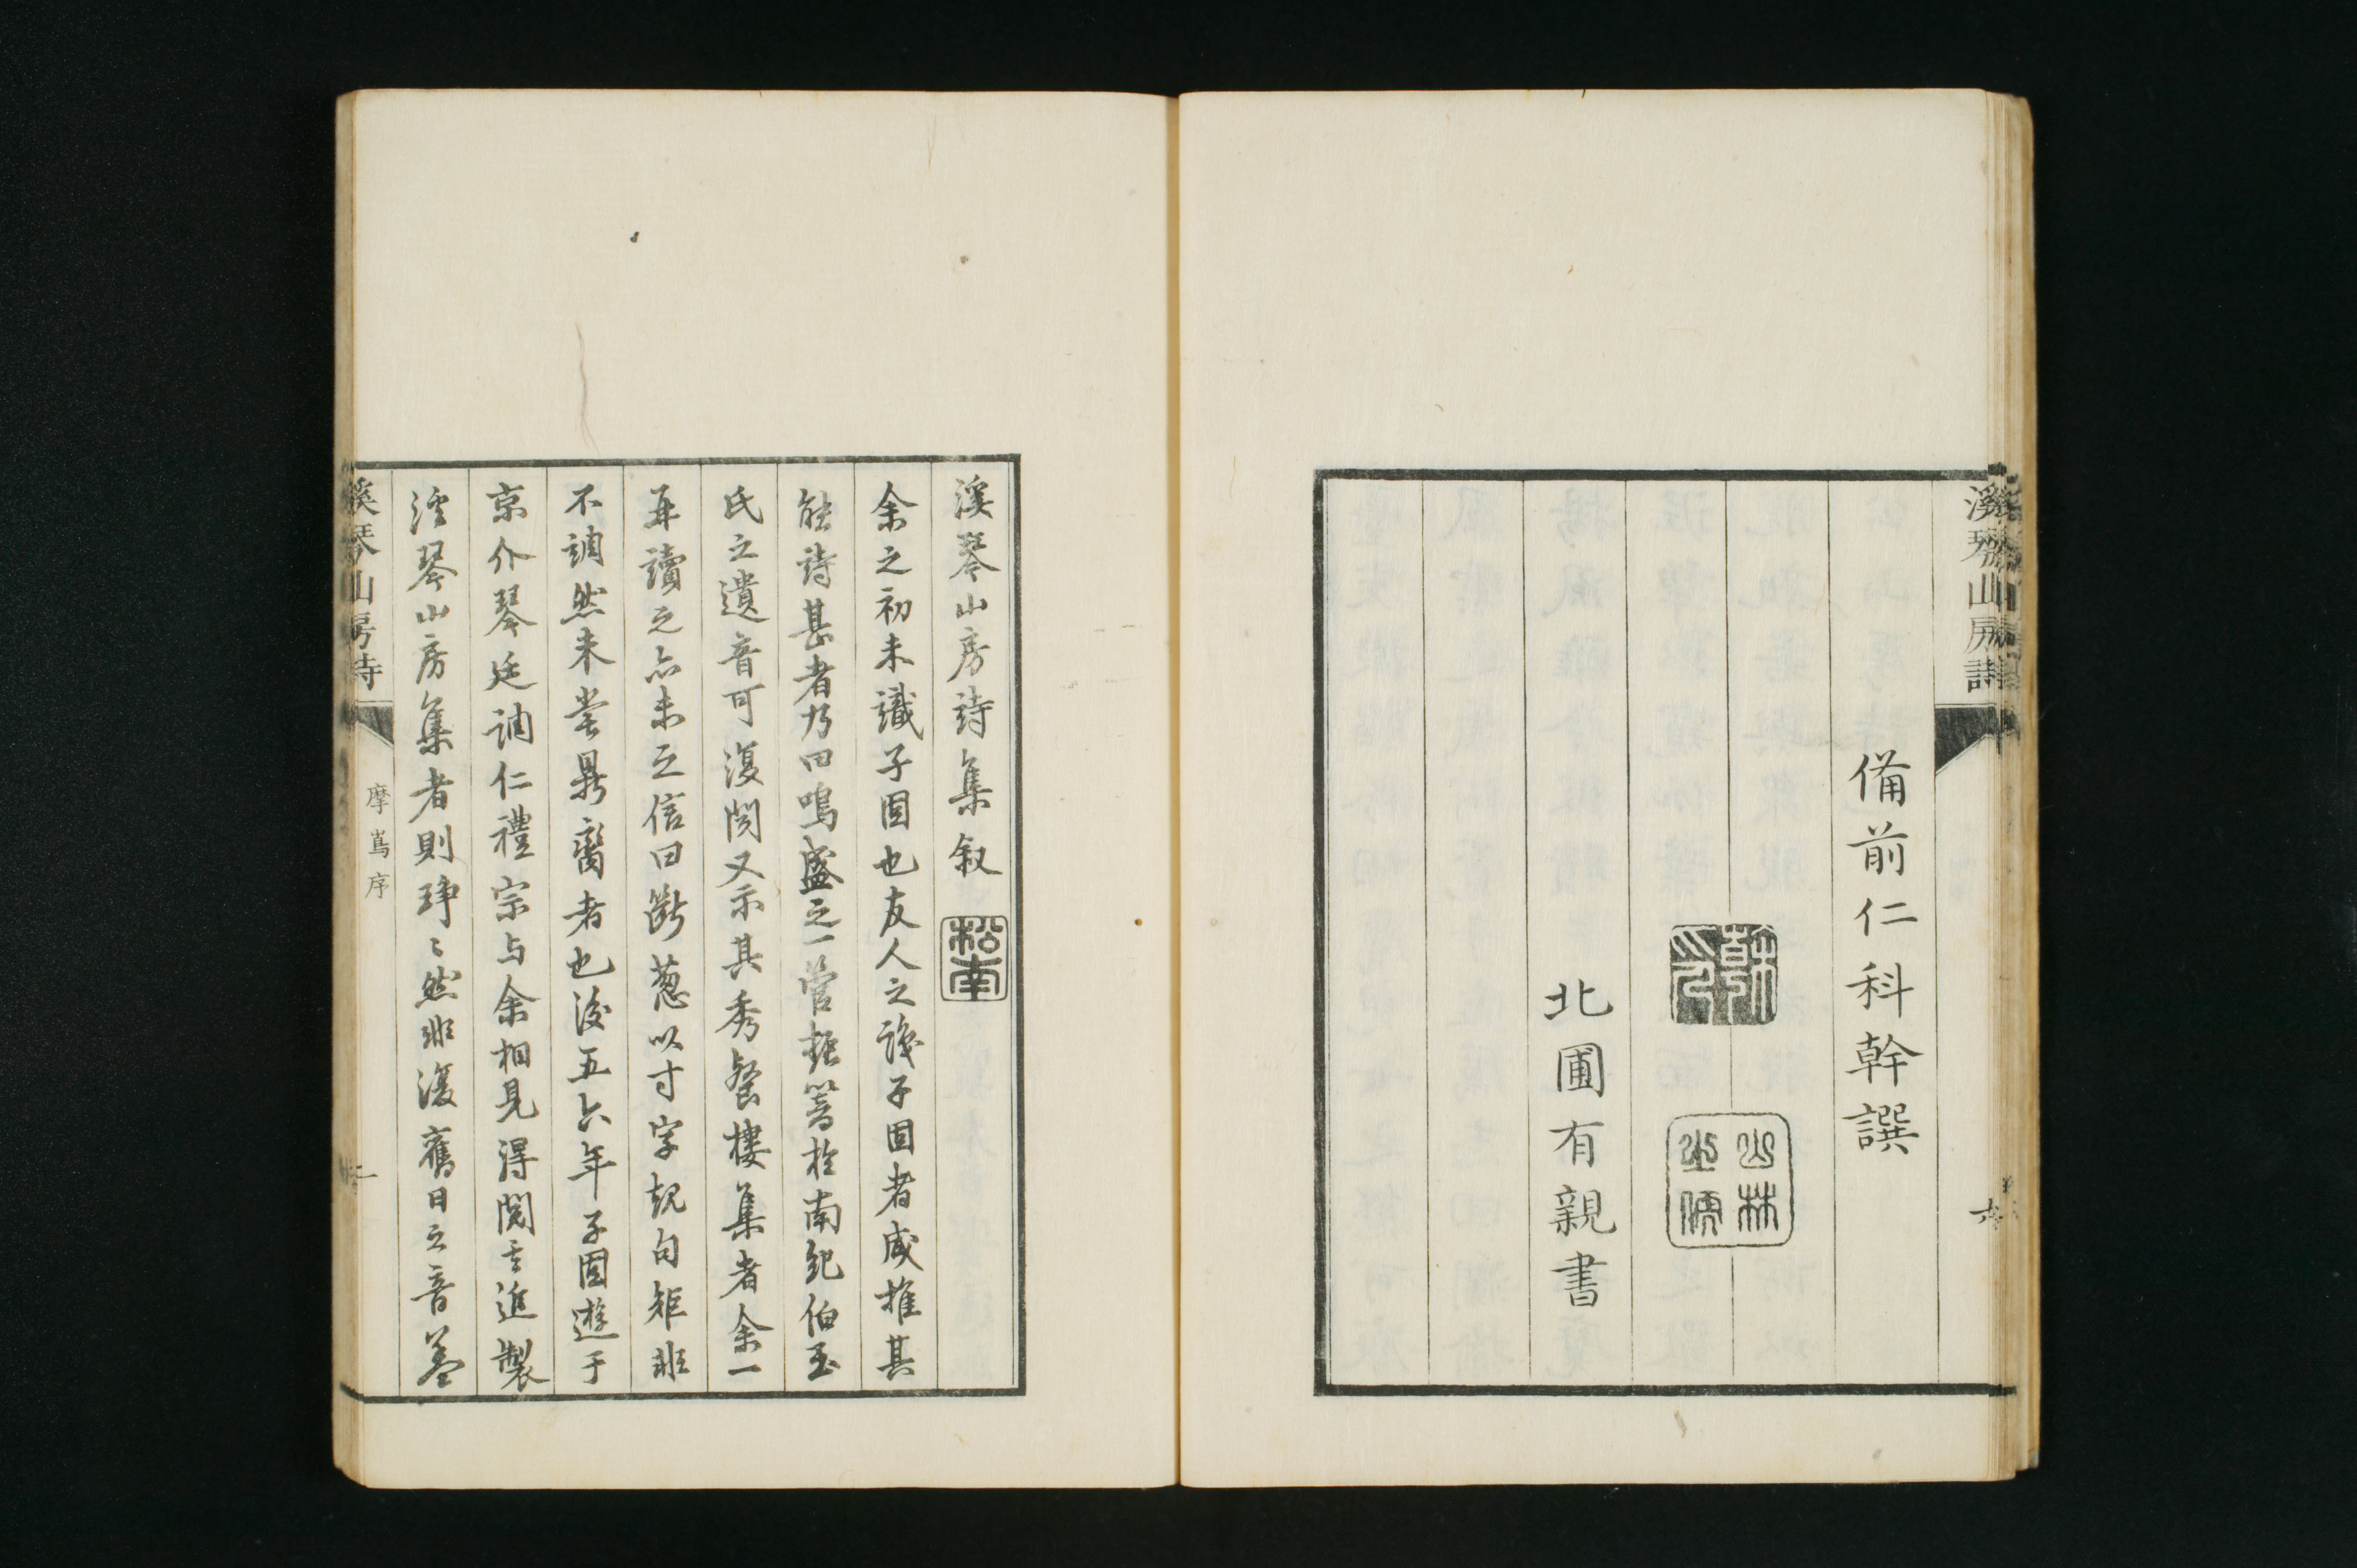 溪琴山房詩
六
備前仁科幹譔
幹印
山林
坐儒
北圃有親書
溪琴山房詩集叙
松南
余之初未識子固也友人之識子固者咸推其
能詩甚者乃曰鳴盛之一管振籥於南紀伯玉
氏之遺音可復閲又示其秀餐樓集者余一
再讀之亦未之信曰斷葱以寸字規句矩非
不調然未嘗鼎臠者也後五六年子固遊于
京介琴廷調仁禮宗与余相見得閲其近製
溪琴山房集者則琤〻然非復舊日之音蓋
溪琴山房詩
摩嶌序
一